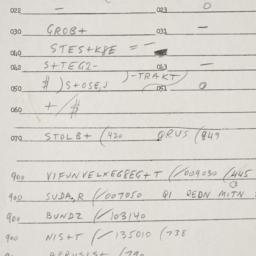 022 — 023 0
030 GROB+ 031 —
040 STES+K8E = —
040 S+TEG2- )-TRAKT/ 043 —
050 $ ) S+OSE,J 051 0
060 + /$
070 STOLB+ (420 QRUS (849
900 VIFUNVELKEGREG+T (/009030 /445
900 SUDA,R /007050 QI REDN MITN
900 BUNDZ (/103140
900 NIS+T (/135010 (738